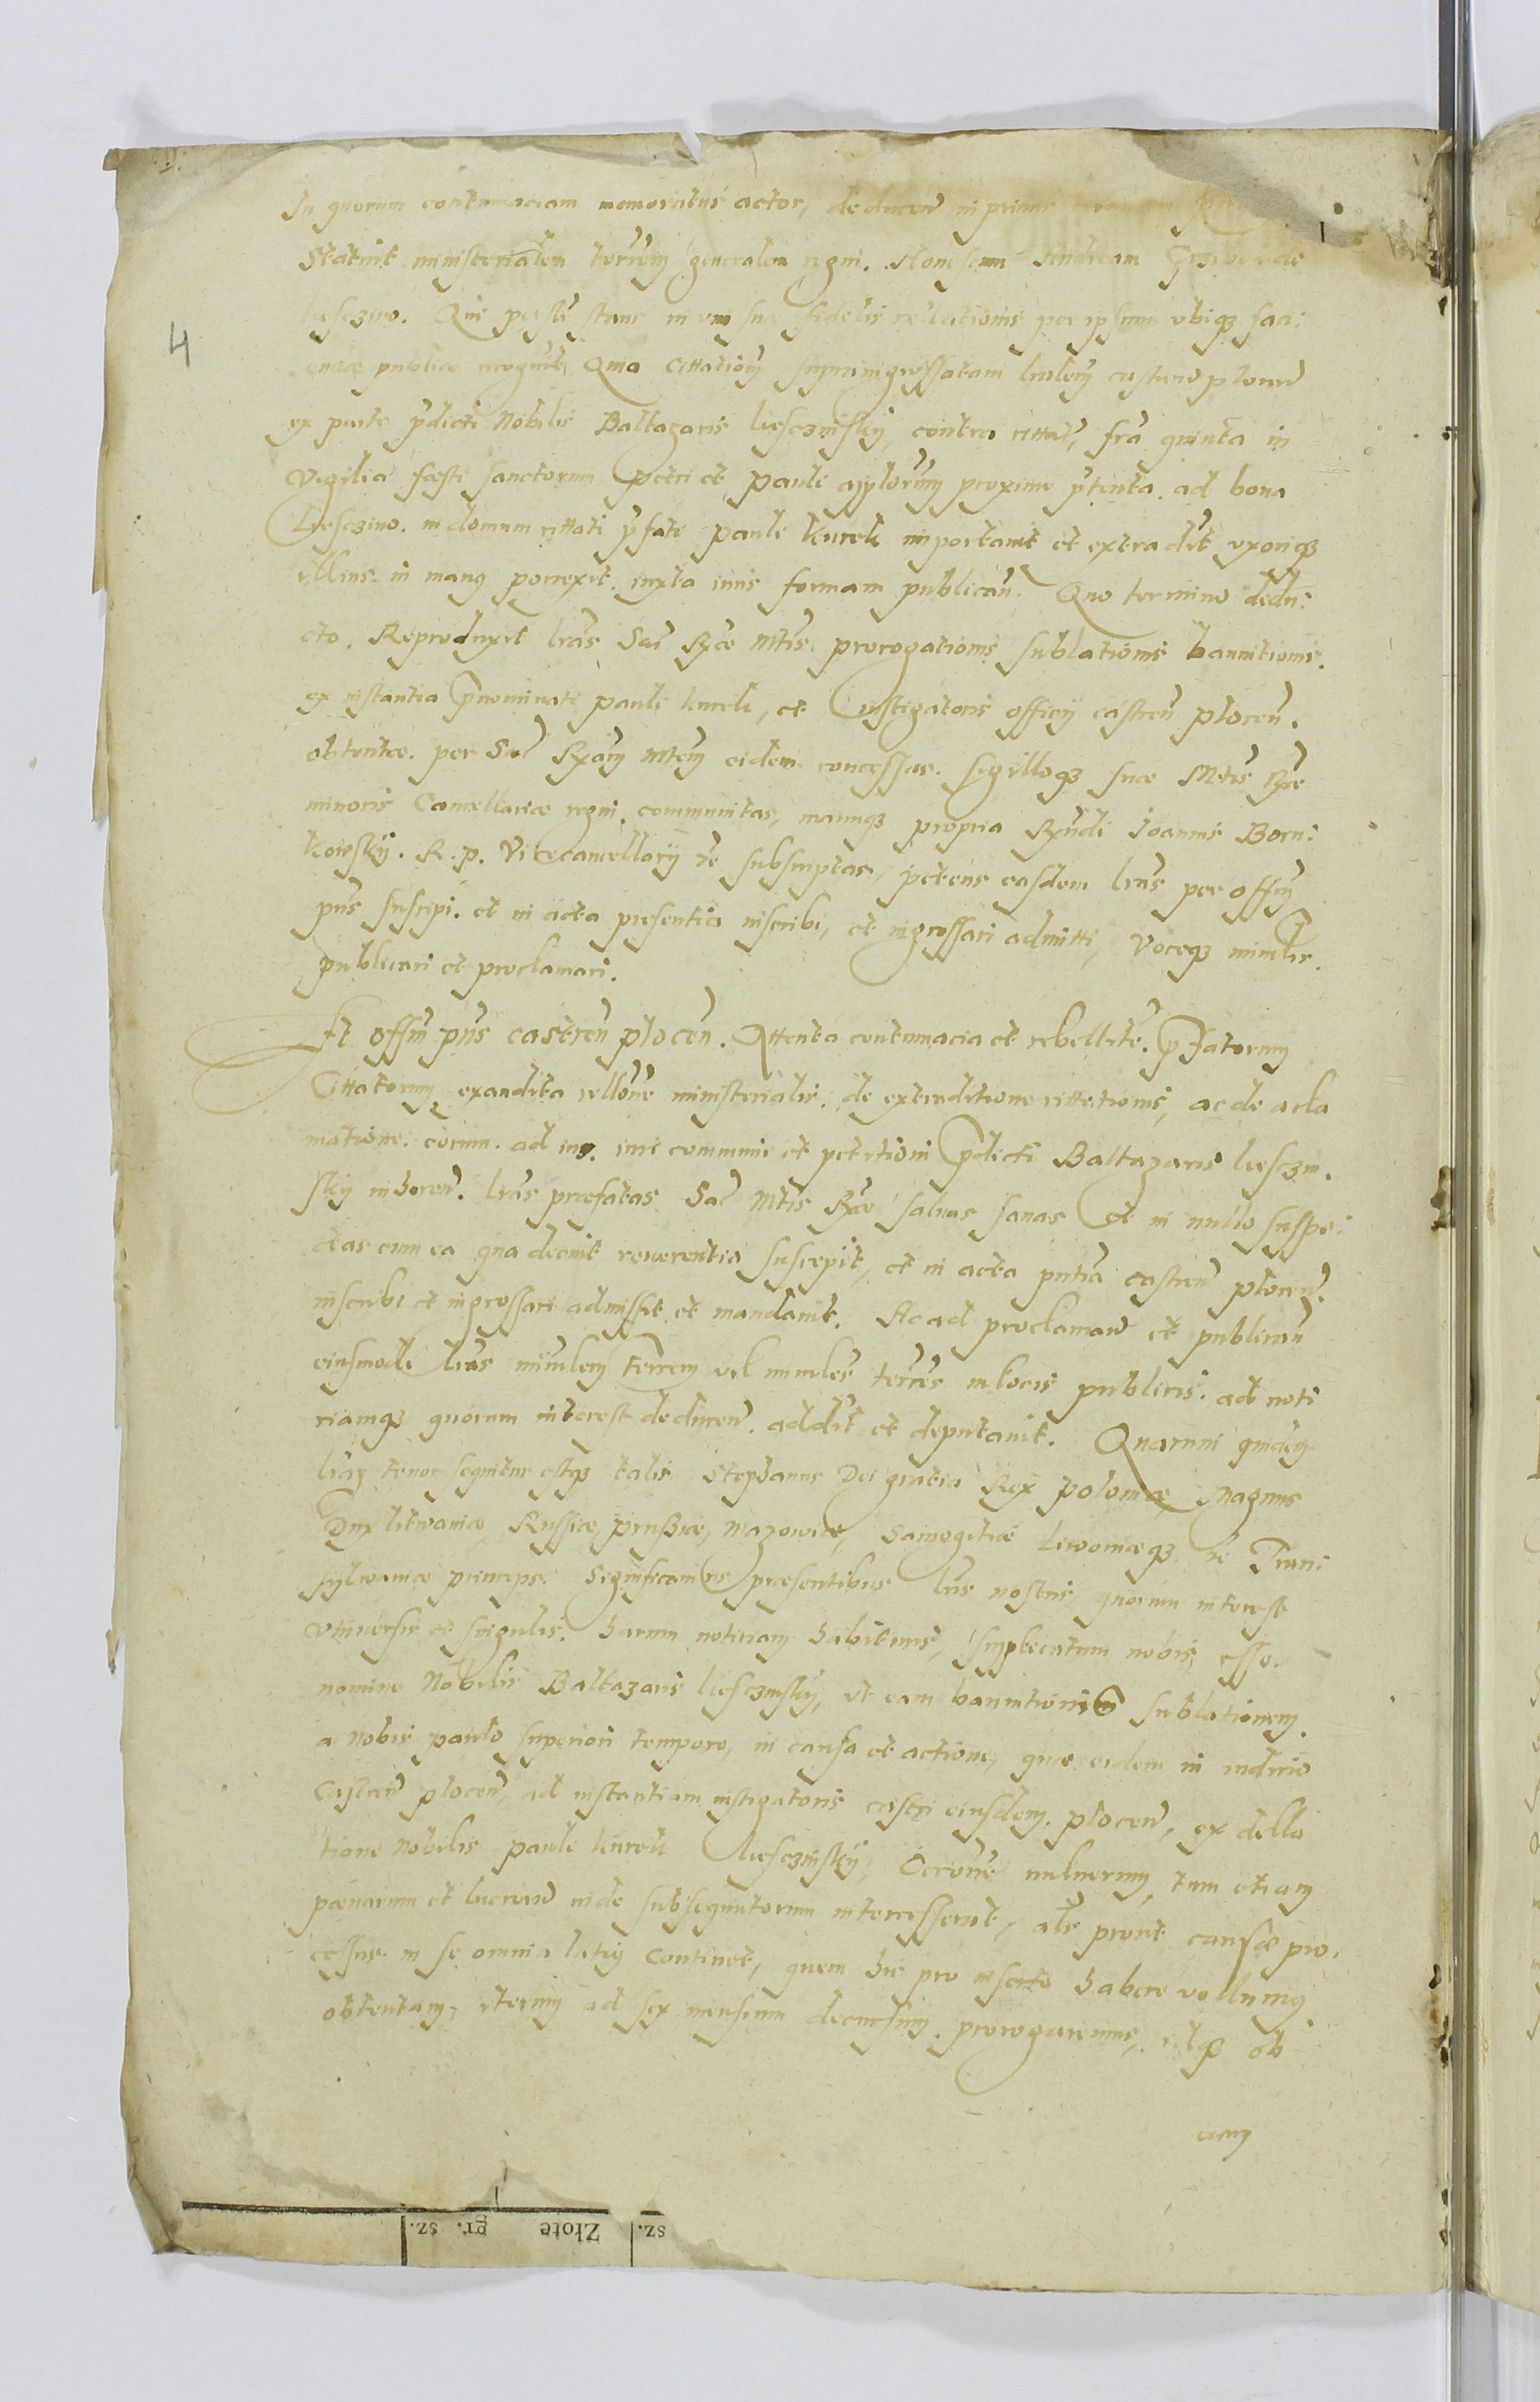 In quorum contumaciam memoratus actor, deducend in primis
Statuit ministerialem terrem generalem regni. Honestum Andream de
Liesczino. Qui personalr stans in vim suæ fidelis rellationis per ipsum vbiq faci:
endæ publice recognit, Quia Cittationem supraingrossatam literalem castren plocen
ex parte pdicti Nobilis Baltazaris Liesczinsky, contra cittatum, fra quinta in
Vigilia fæsti sanctorum Petri et Pauli applorum proxime ptenta. ad bona
Liesczino. in domum cittati pfati Pauli Kurek importauit et extradit vxoriq
illius in manus porrexit. iuxta iuris formam publicam. Quo termino dedu:
cto. Reproduxit lras Sac Rgæ Mtis prorogationis sublationis bannitionis.
ex instantia pnominati Pauli Kurek, et instigatoris officij castren plocen.
obtentæ. per Sac Rgam Mtem eidem concessas. sigilloq suæ Mtis Rgæ
minoris Cancellariæ regni. communitas, manuq propria Rndi Joannis Boru:
kowsky. R. p. Vicecancellarij etc subscriptas, petens easdem lras per offm
pns suscipi. et in acta presentia inscribi, et ingrossari admitti, Voceq minlis.
publicari et proclamari.
Et offm pns castren plocen. Attenta contumacia et rebellite. pfatorum
Cittatorum, exaudita rellone ministerialis. de extraditione cittationis, ac de acla
matione. eorum. ad ius. iuri communi et petitioni pdicti Baltazaris Liesczin.
sky inhæren. lras præfatas Sac Mtis Rgæ saluas sanas et in nullo suspe:
ctas cum ea qua decuit reuerentia suscepit, et in acta pntia castren plocen.
inscribi et ingrossari admissit et mandauit. Ac ad proclamand et publicand
eiusmodi lras minlem terrem vel minles terres in locis publicis. ad noti
ciamq quorum interest deducend. addit et deputauit. Quarum quidem
lrarum tenor sequitur estq talis Stephanus Dei gratia Rex Poloniæ, Magnus
Dux Lituaniæ, Russiæ, Prussiæ, Mazowiæ, Samogitiæ Liwoniæq etc Tran:
sylwaniæ princeps. Significamus præsentibus lris nostris, quorum interest
Vniuersis et singulis. harum noticiam habituris, supplicatum nobis esse.
nomine Nobilis Baltazaris Liesczinsky, vt eam bannitionis sublationem.
a nobis paulo superiori tempore, in causa et actione, quæ eidem in iudicio
Castren plocen, ad instantiam instigatoris castri eiusdem. plocen, ex della
tione Nobilis Pauli Kurek Liesczinsky, Occone vulnerum, tum etiam
pænarum et lucrorum inde subsequutorum intercesserat, alr prout causæ pro.
cessus in se omnia latius continet, quem hic pro inserto habere vollumus
obtentam, iterum ad sex mensium decursum. prorogaremus, idq ob
eam
4
Złote gr. sz.
sz.